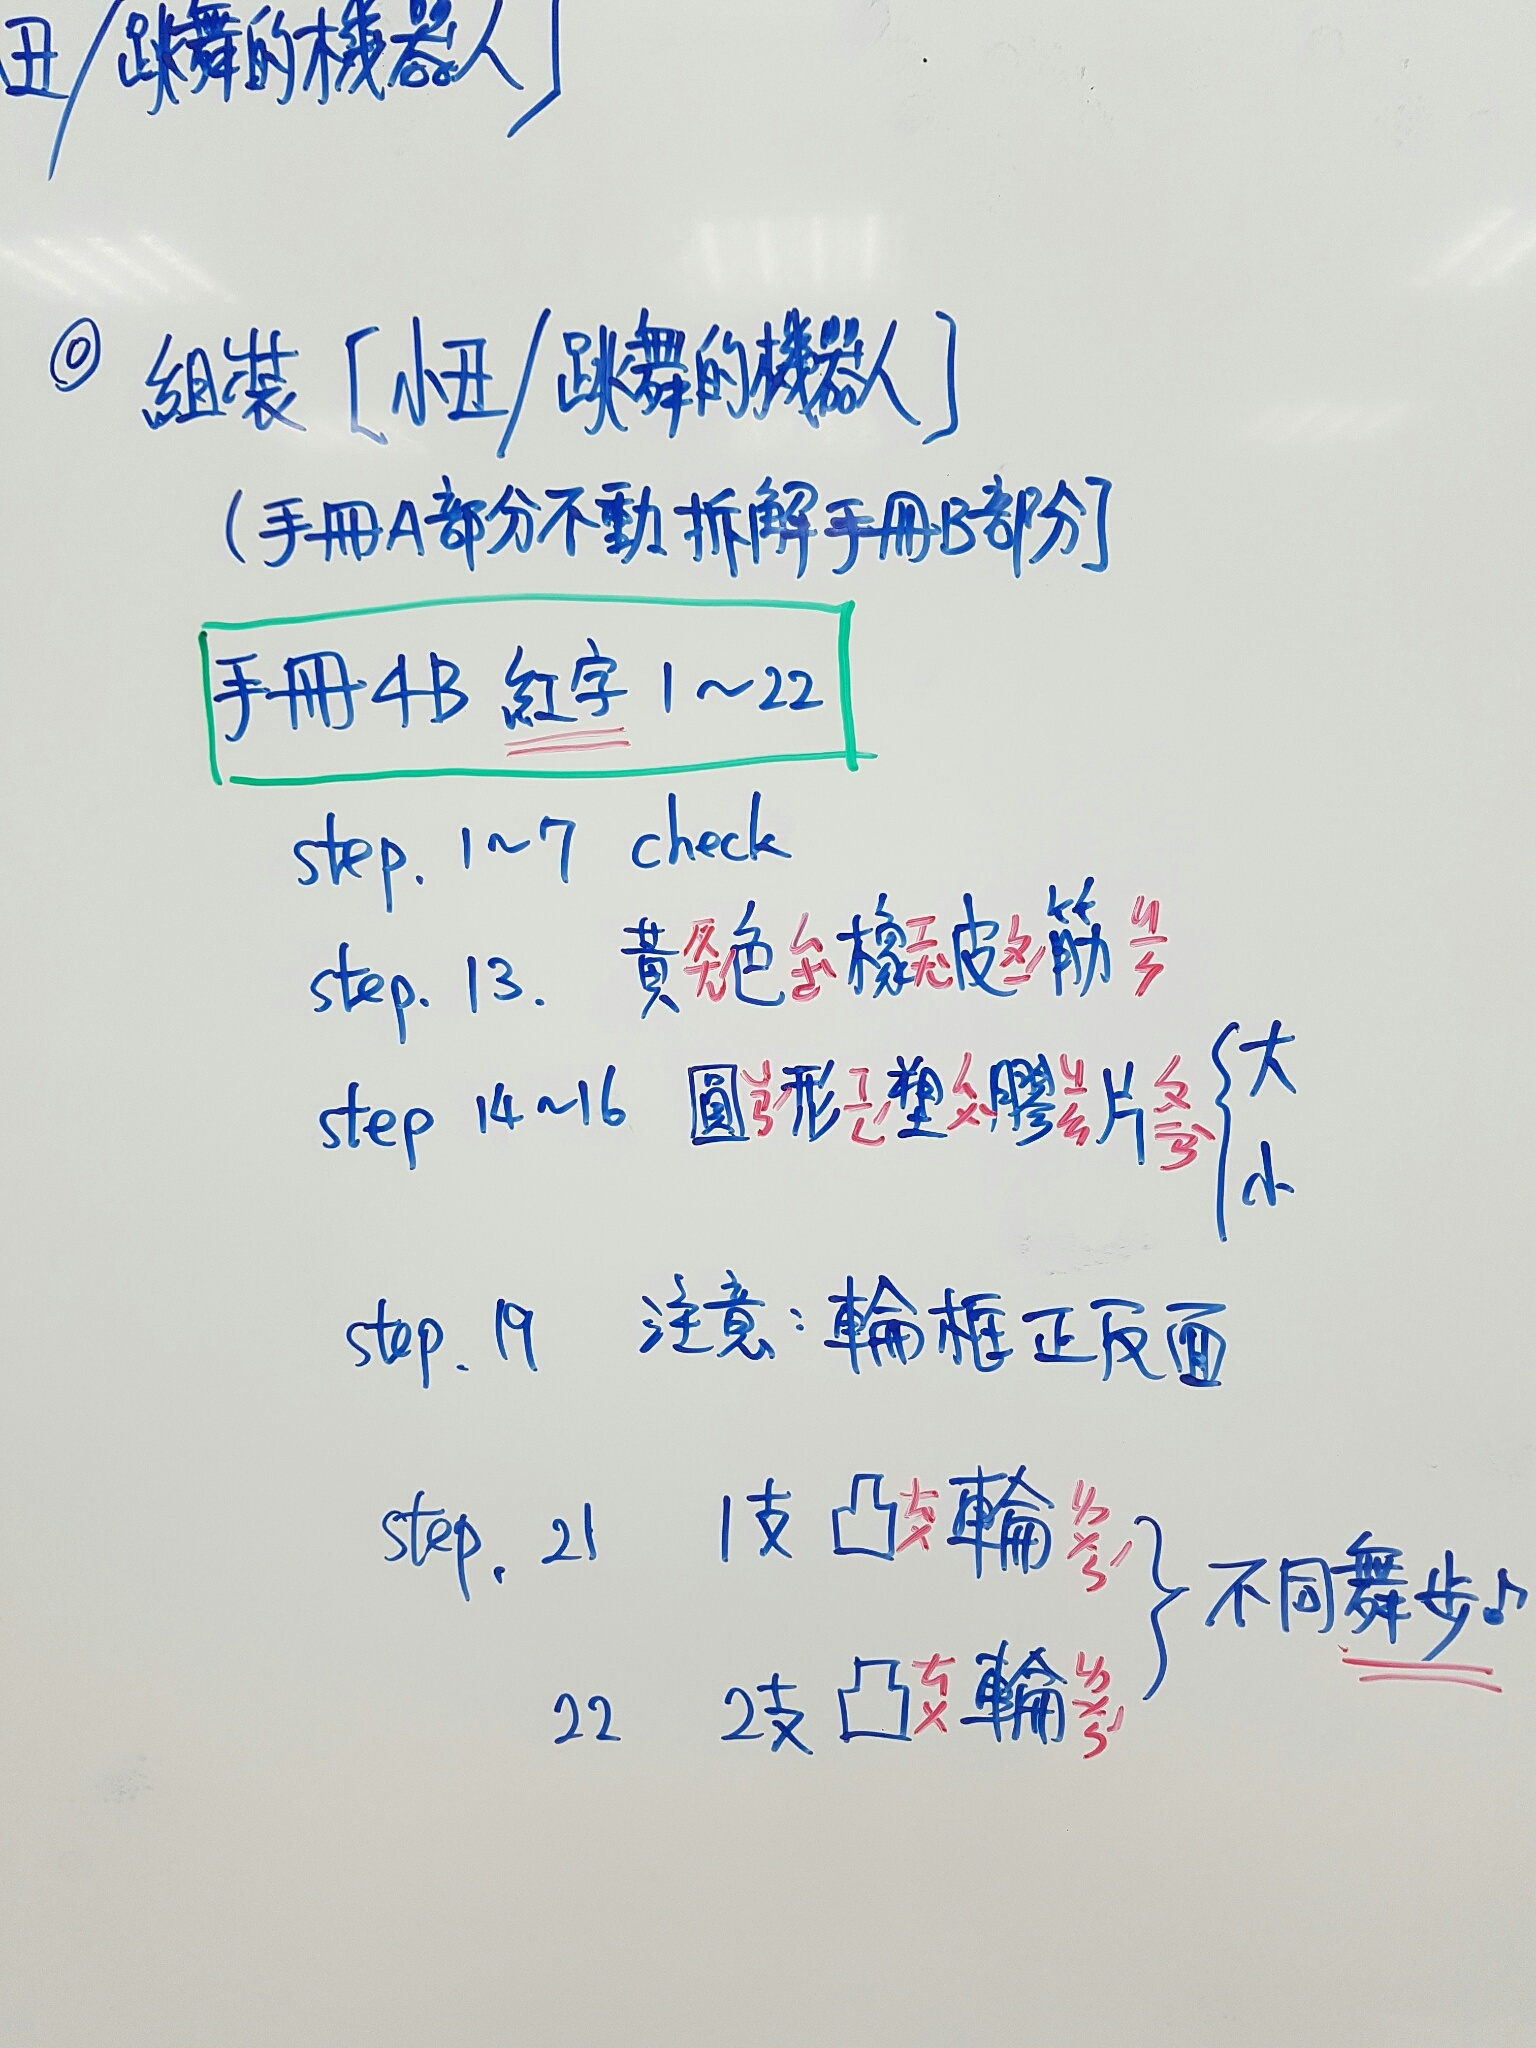 丑/跳舞的機器人]
◎ 組裝 [小丑/跳舞的機器人]
(手冊A部分不動 拆解手冊B部分]
手冊4B 紅字 1~22
step. 1~7 check
step. 13. 黃ㄏㄨㄤˊ色ㄙㄜˋ橡ㄒㄧㄤˋ皮ㄆㄧˊ筋ㄐㄧㄣ
step 14~16 圓ㄩㄢˊ形ㄒㄧㄥˊ塑ㄙㄨˋ膠ㄐㄧㄠ片ㄆㄧㄢˋ { 大
小
step. 19 注意:輪框正反面
step. 21 1支 凸ㄊㄨ輪ㄌㄨㄣˊ } 不同舞步♪
22 2支 凸ㄊㄨ輪ㄌㄨㄣˊ